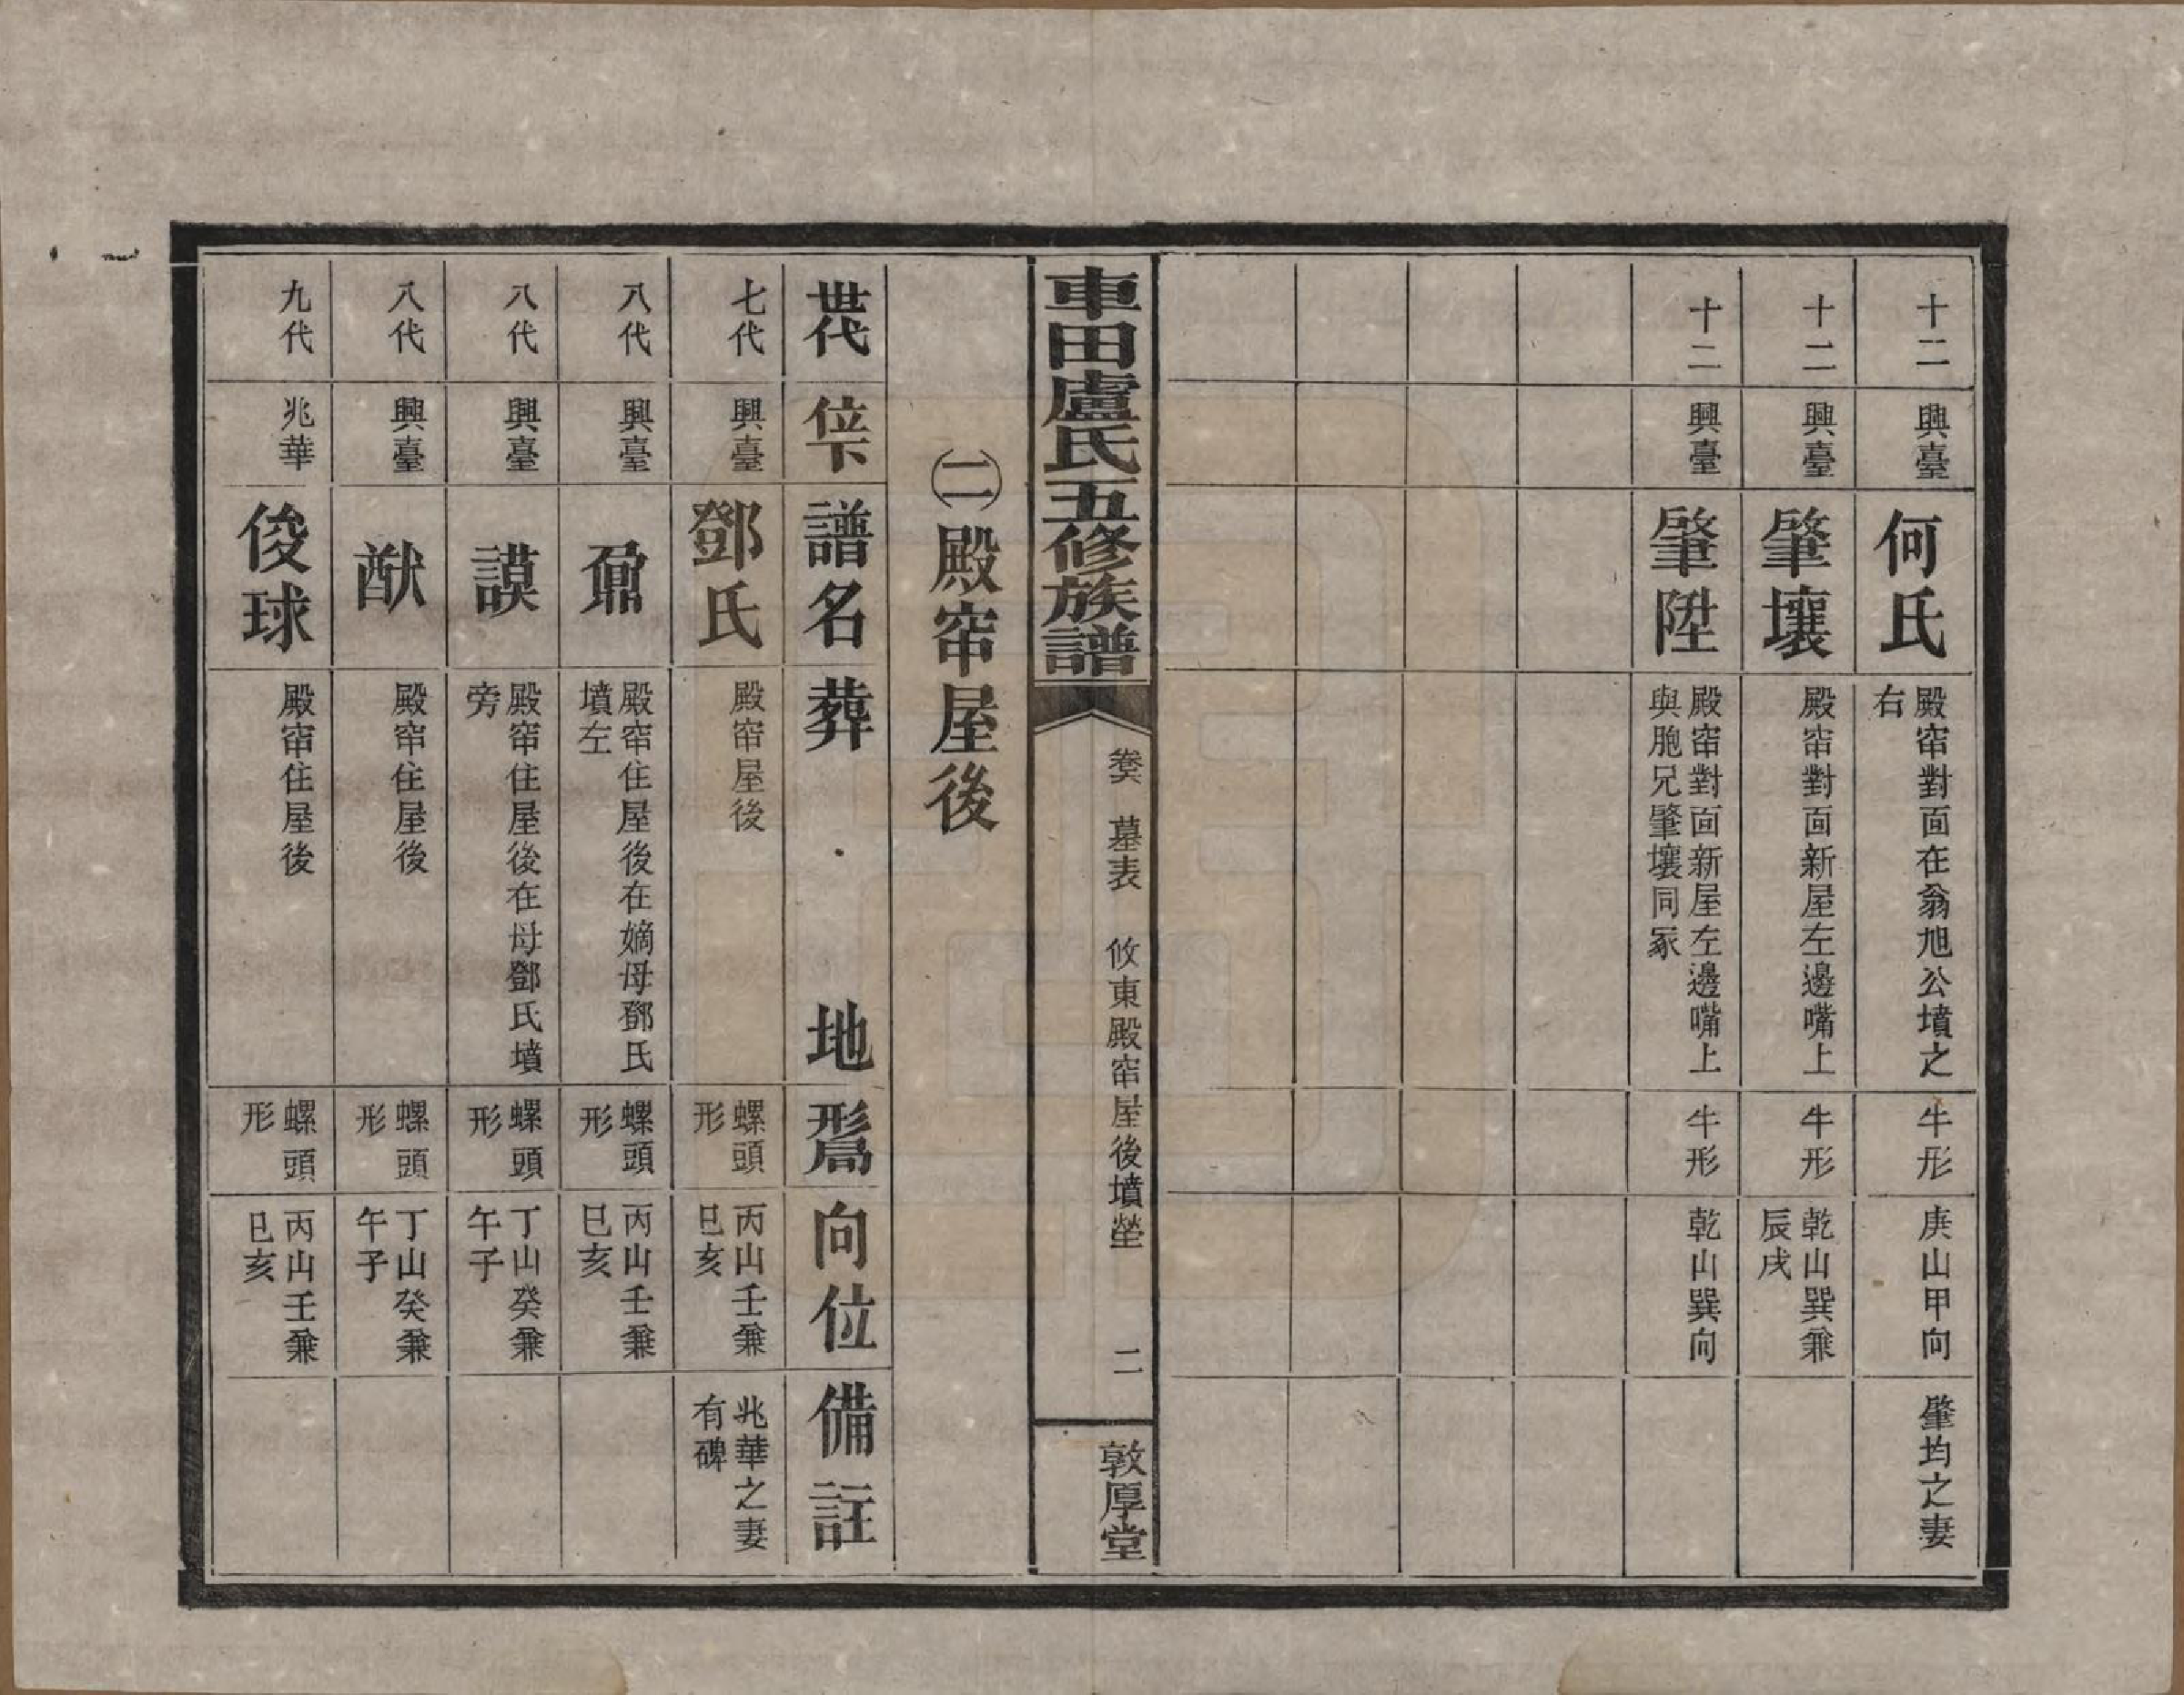 十二 興臺 何氏 殿帘對面在翁旭公墳之右 牛形 庚山甲向 肇均之妻
十二 興臺 肇壤 殿帘對面新屋左邊嘴上 牛形 乾山巽兼辰戌
十二 興臺 肇陞 殿帘對面新屋左邊嘴上與胞兄肇壤同冢 牛形 乾山巽向
車田盧氏五修族譜 卷六 墓表 攸東殿帘屋後墳塋 二 敦厚堂
㈡殿帘屋後
世代 位下 譜名 葬地 形局 向位 備註
七代 興臺 鄧氏 殿帘屋後 螺頭形 丙山壬兼巳亥 兆華之妻有碑
八代 興臺 鼐 殿帘住屋後在嫡母鄧氏墳左 螺頭形 丙山壬兼巳亥
八代 興臺 謨 殿帘住屋後在母鄧氏墳旁 螺頭形 丁山癸兼午子
八代 興臺 猷 殿帘住屋後 螺頭形 丁山癸兼午子
九代 兆華 俊球 殿帘住屋後 螺頭形 丙山壬兼巳亥